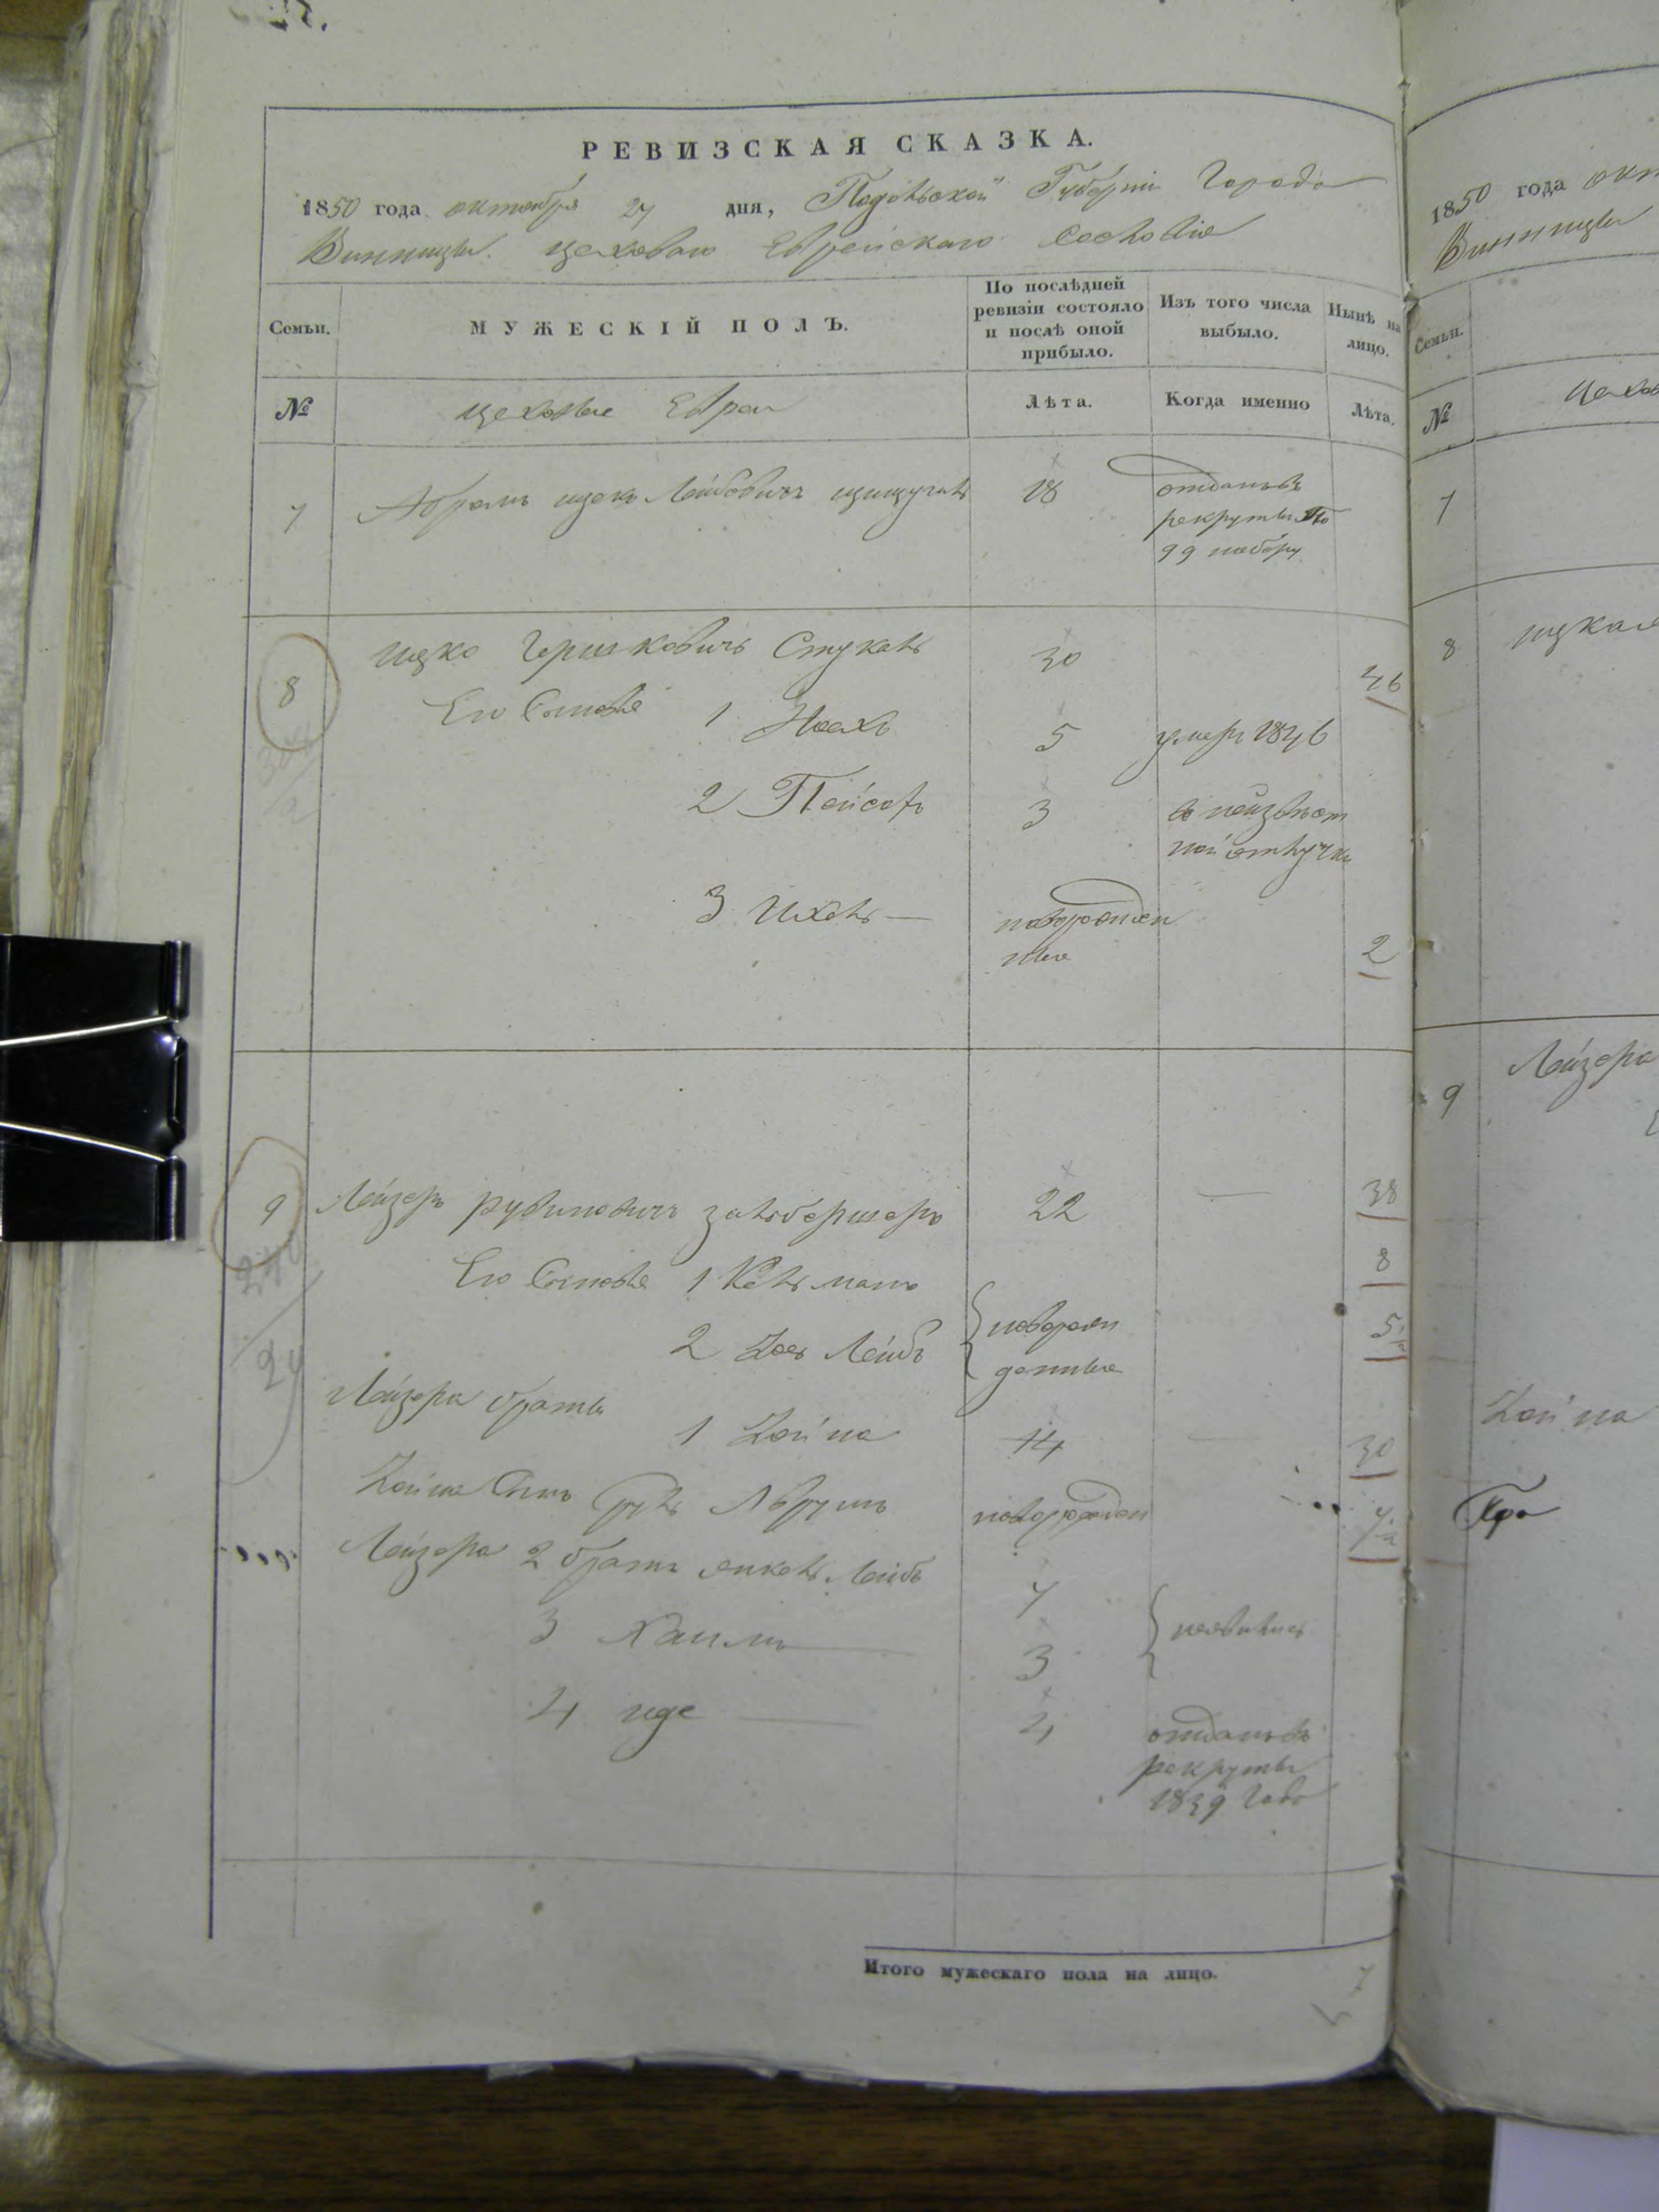 РЕВИЗСКАЯ СКАЗКА.
1850 года октября 27 дня, Подольской Губерніи Города
Винницы цеховаго Еврейскаго Сословія
Семьи. МУЖЕСКІЙ ПОЛЪ. По послѣдней ревизіи состояло и послѣ оной прибыло. Изъ того числа выбыло. Нынѣ на лицо.
№ цеховые Евреи Лѣта. Когда именно Лѣта.
7 Абрамъ ицекъ Лейбовичъ 18 отданъ въ
рекруты По
99 набору
8 ицко Гершковичъ Стукалъ 30 46
Его Сыновья 1 Ноахъ 5 умеръ 1846
2 Пейсахъ 3 в неизвѣст
ной отлучки
3 Ихелъ новорожден
ные 2
9 Лейзеръ рувиновичъ зальбершеръ 22 38
Его Сыновья 1 Кельманъ 8
2 Лейбъ новорож
денные 5
Лейзера братья
1 Хаина 14 30
Сынъ Аврумъ новорожден
Лейзера 2 братъ янкель Лейбъ 7
3 Хаимъ 3 неявились
4 иде 4 отданъ въ
рекруты
1839 Года
Итого мужескаго пола на лицо. 7
1850 года окт
Винницы
Семьи.
№ Цехов
7
8 ицка
9 Лейзера